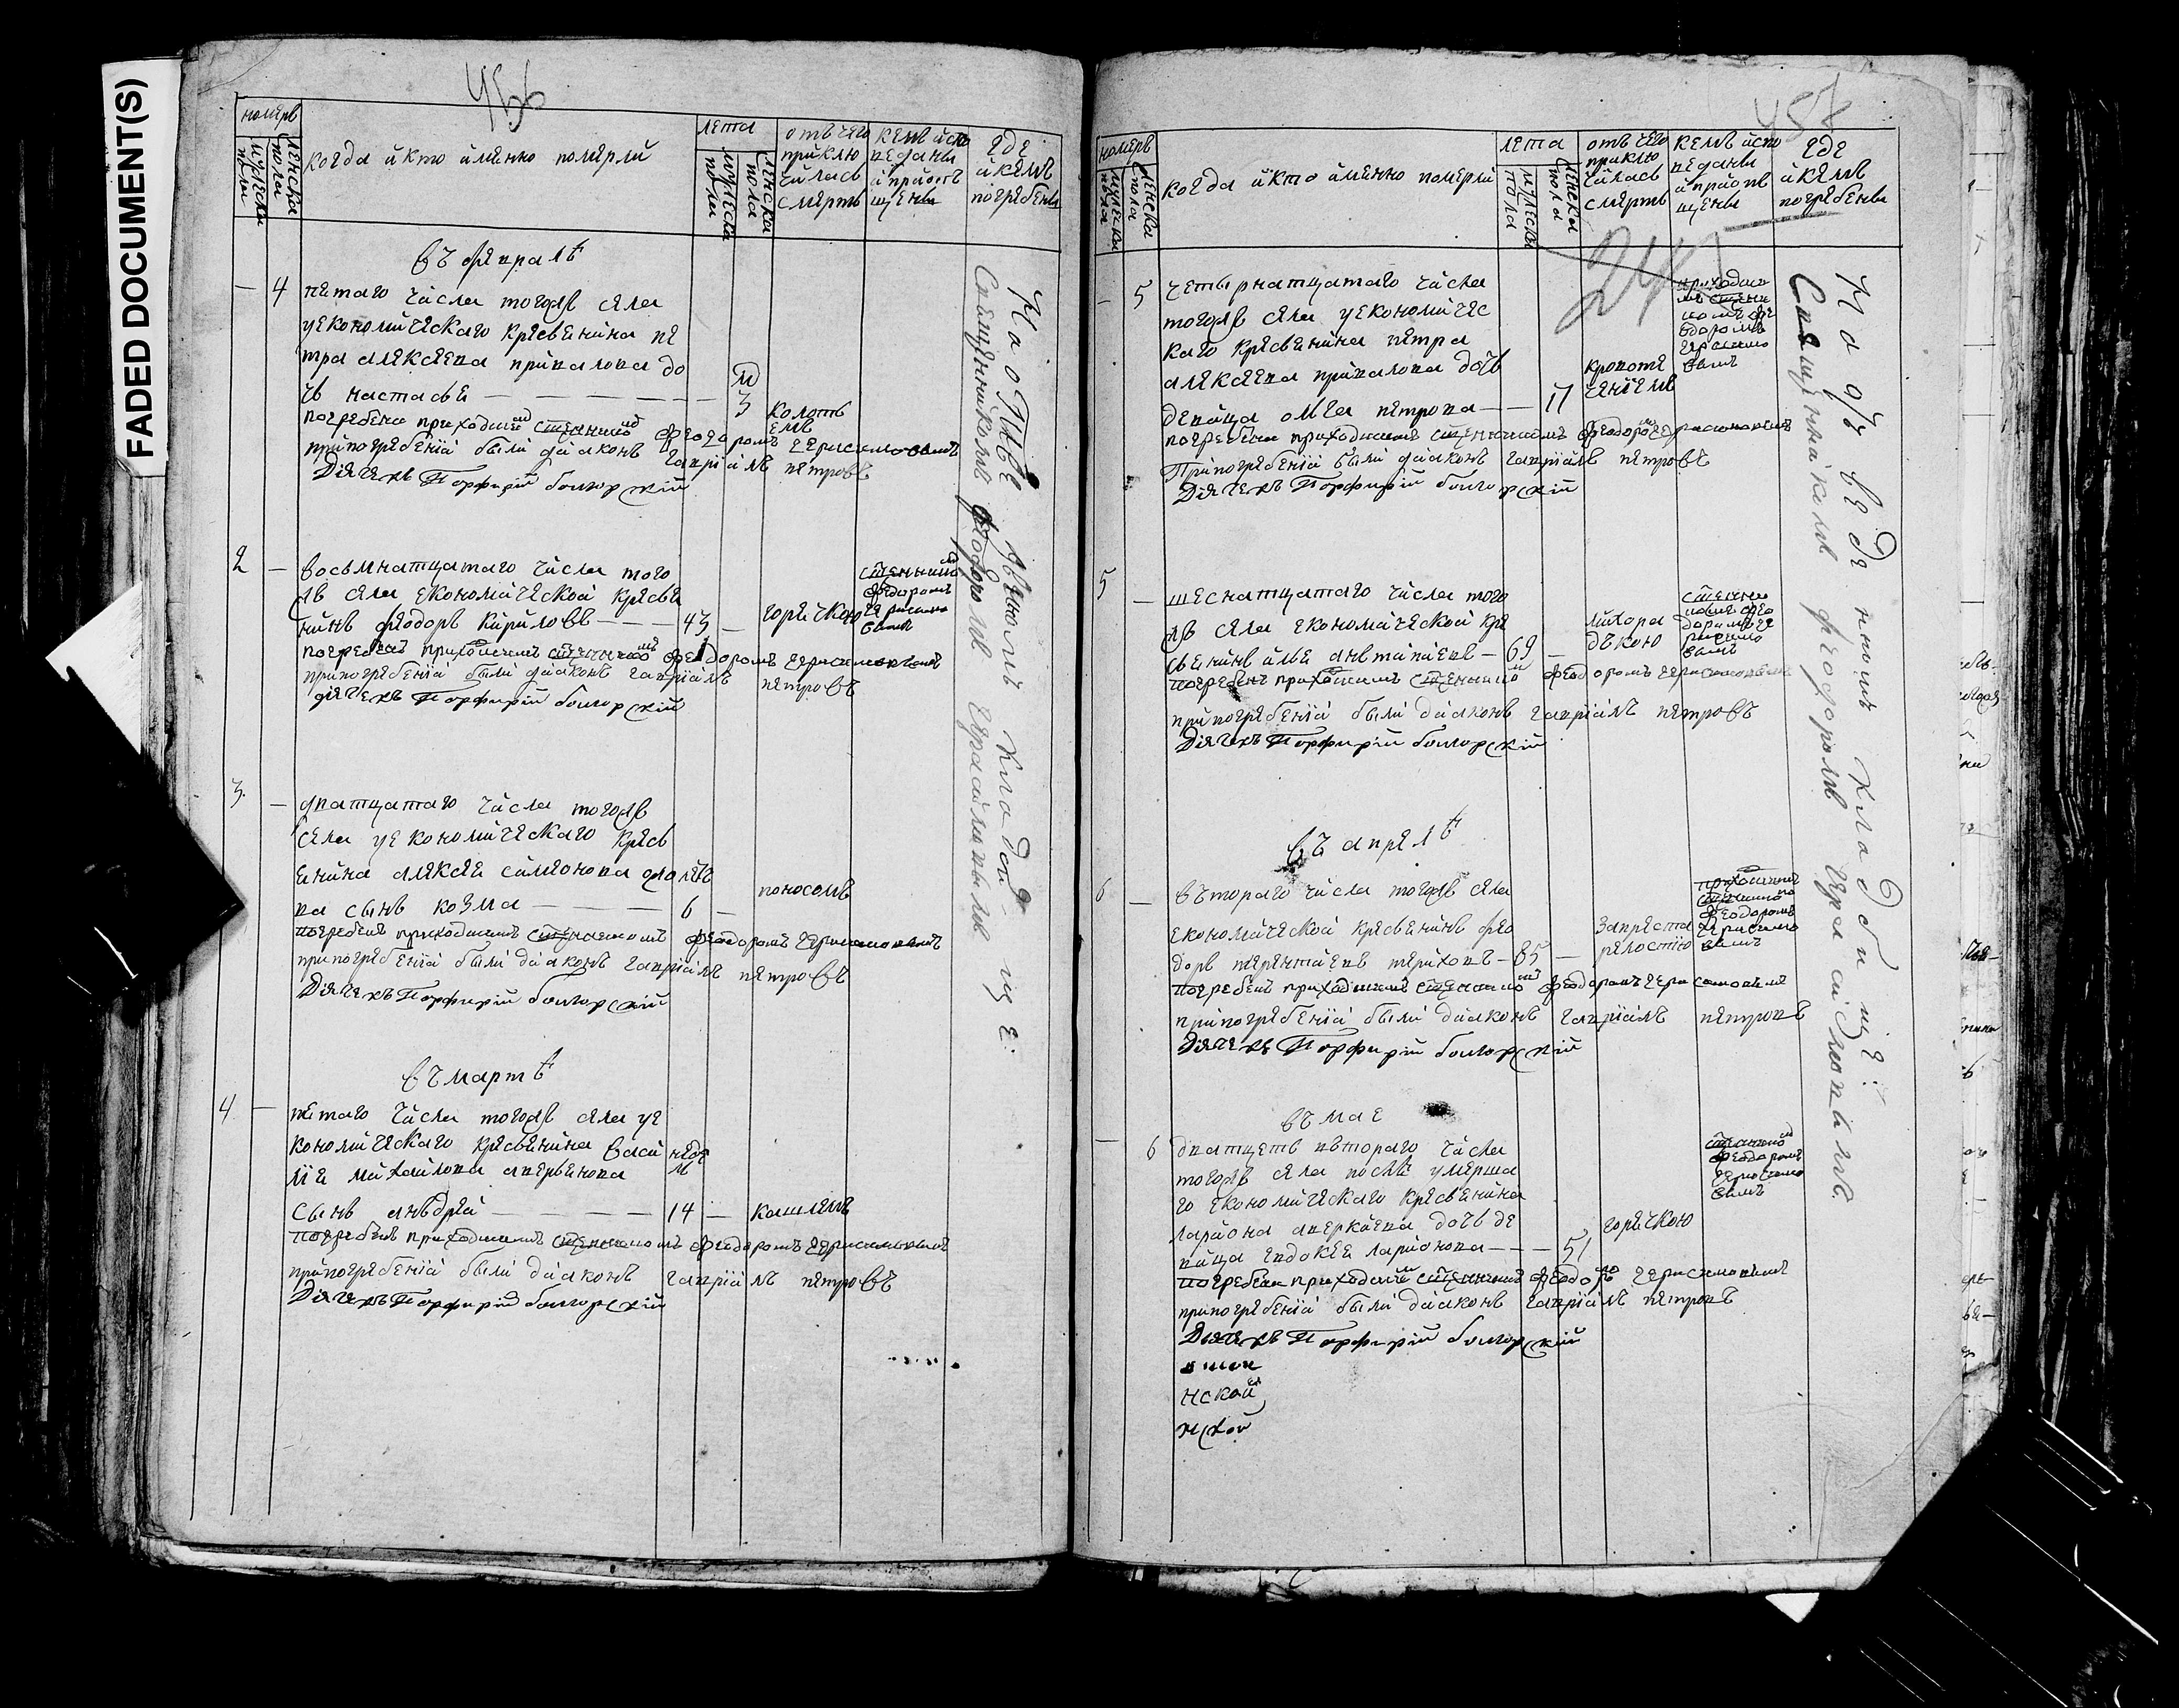 FADED DOCUMENT(S)
456
номеръ
мужеска пола
женска пола
когда и кто именно померли
лета
мужеска пола
женска пола
отъ чего приклю
чилась
смерть
кемъ испо
веданы
и приоб
щены
где
и кемъ
погребены
въ февралѣ
4 пятаго числа тогожъ села
уекономическаго кресьенина пе
тра алексеева привалова до
чь настасья 3
колоть
емъ
погребена приходским священником феодоромъ герасимовымъ
припогребении были диаконъ гавриилъ петровъ
Дiячекъ Порфирiй болгорскiй
2 восьмнатцатаго числа того
жъ села економической кресье
нинъ феодоръ кириловъ 43
горячкою
священником
феодоромъ
герасимо
вымъ
погребенъ приходскимъ священникомъ феодоромъ герасимовымъ
припогребении были диаконъ гавриилъ петровъ
дiячекъ Порфирiй болгорскiй
3 дватцатаго числа тогожъ
села уекономическаго кресь
енина алексея симеонова
ва сынъ козма 6
поносомъ
погребенъ приходскимъ священникомъ феодоромъ герасимовымъ
припогребении были диаконъ гавриилъ петровъ
Дiячекъ Порфирiй болгорскiй
въ мартѣ
4 пятаго числа тогожъ села уе
кономическаго кресьенина васи
лие михаилова аверьенова
недель
сынъ аньдрей 14
кашлямъ
погребенъ приходскимъ священникомъ феодоромъ герасимовымъ
припогребении были диаконъ гавриилъ петровъ
Дiячекъ Порфирiй болгорскiй
На отведенномъ кладбище
Священникомъ феодоромъ Герасимовымъ
457
номеръ
мужеска пола
женска пола
когда и кто именно померли
лета
мужеска пола
женска пола
отъ чего
приклю
чилась
смерть
кемъ испо
веданы
и приоб
щены
где
и кемъ
погребены
5 четырнатцатаго числа
тогожъ села уекономичес
каго кресьенина петра
алексеева привалова дочь
девица ольга петрова 17
кровоте
чениемъ
приходски
мъ священи
комъ фе
одоромъ
герасимо
вымъ
погребена приходскимъ священникомъ феодоромъ герасимовымъ
Припогребении были диаконъ гавриилъ петровъ
Дiячекъ Порфирiй болгорскiй
5 шеснатцатаго числа того
жъ села економической кре
сьенинъ илья аньтипиевъ 69
лихора
дькою
священни
комъ фео
доромъ ге
расимо
вымъ
погребенъ приходскимъ священникомъ феодоромъ герасимовымъ
припогребении были диаконъ гавриилъ петровъ
Дiячекъ Порфирiй болгорскiй
въ апрелѣ
6 втораго числа тогожъ села
економической кресьенинъ фео
доръ терентиевъ териховъ 85
запреста
релостию
приходскимъ
священнико
феодоромъ
герасимо
вымъ
погребенъ приходскимъ священникомъ феодоромъ герасимовымъ
припогребении были диаконъ гавриилъ петровъ
Дiячекъ Порфирiй болгорскiй
въ мае
6 дватцеть втораго числа
тогожъ села после умерша
го економическаго кресьенина
лариона аверкиева дочь де
вица евдокея ларионова 51
горячкою
священником
феодоромъ
герасимо
вымъ
погребена приходским священникомъ феодоромъ герасимовымъ
припогребении были диаконъ гавриилъ петровъ
Дьячекъ Порфирiй болгорскiй
нской
нской
На отведенномъ кладбище
Священникомъ феодоромъ Герасимовымъ